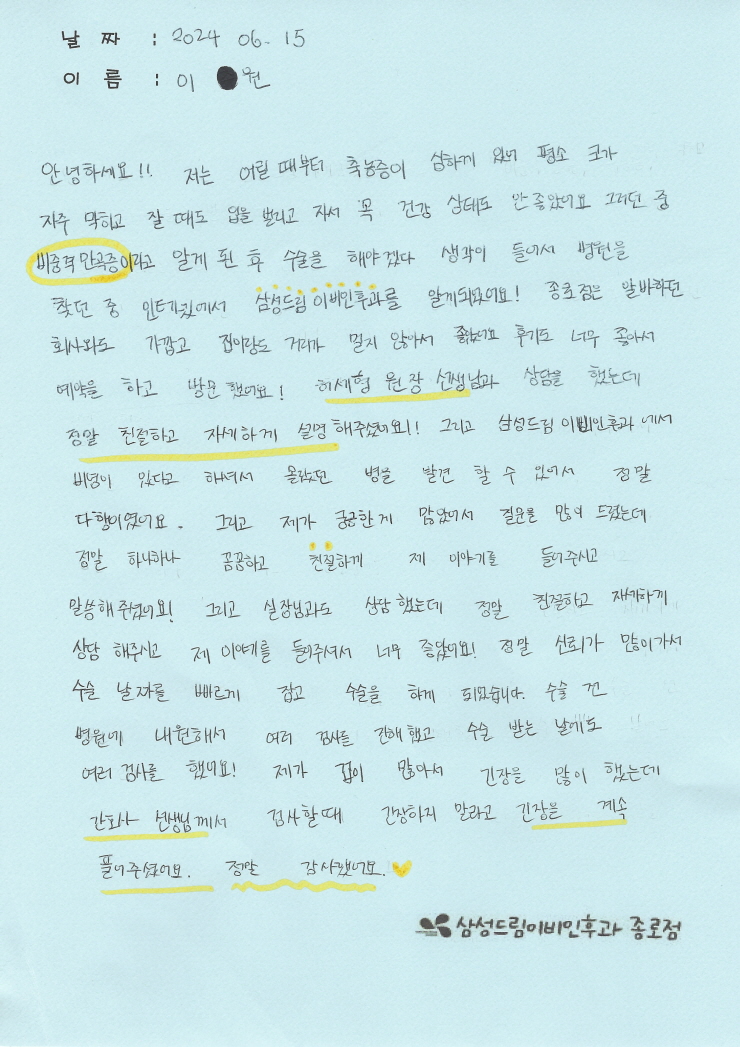 날 짜 : 2024 06. 15
이 름 : 이 원
안녕하세요!! 저는 어릴 때부터 축농증이 심하게 있어 평소 코가
자주 막히고 잘 때도 입을 벌리고 자서 목 건강 상태도 안 좋았어요 그러던 중
비중격 만곡증이라고 알게 된 후 수술을 해야겠다 생각이 들어서 병원을
찾던 중 인터넷에서 삼성드림이비인후과를 알게되었어요! 종로점은 알바하던
회사와도 가깝고 집이랑도 거리가 멀지 않아서 좋았어요 후기도 너무 좋아서
예약을 하고 방문했어요! 허세형 원장 선생님과 상담을 했는데
정말 친절하고 자세하게 설명 해주셨어요! 그리고 삼성드림이비인후과에서
비염이 있다고 하셔서 몰랐던 병을 발견 할 수 있어서 정말
다행이였어요. 그리고 제가 궁금한게 많았어서 질문을 많이 드렸는데
정말 하나하나 꼼꼼하고 친절하게 제 이야기를 들어주시고
말씀해주셨어요! 그리고 실장님과도 상담했는데 정말 친절하고 자세하게
상담 해주시고 제 이야기를 들어주셔서 너무 좋았어요! 정말 신뢰가 많이가서
수술 날짜를 빠르게 잡고 수술을 하게 되었습니다. 수술 전
병원에 내원해서 여러 검사를 진행했고 수술 받는 날에도
여러 검사를 했어요! 제가 겁이 많아서 긴장을 많이 했는데
간호사 선생님께서 검사할때 긴장하지 말라고 긴장을 계속
풀어주셨어요. 정말 감사했어요.
삼성드림이비인후과 종로점